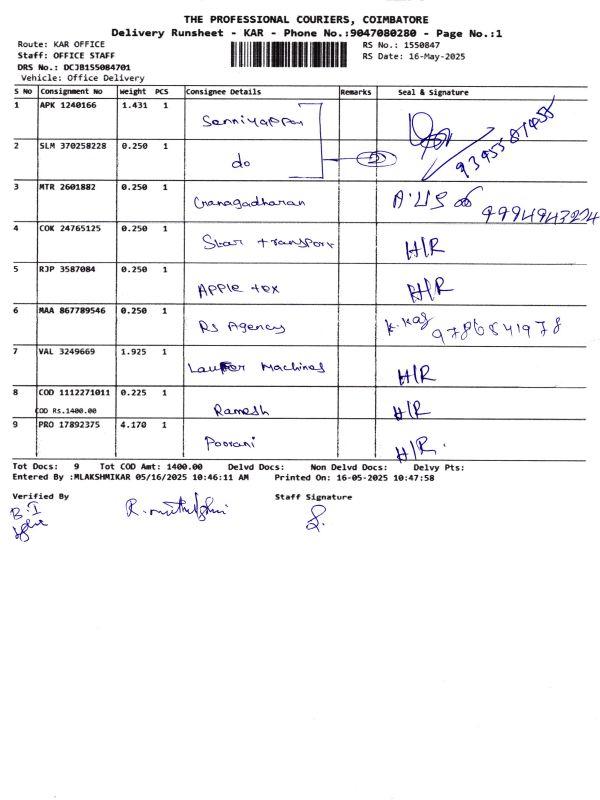 THE PROFESSIONAL COURIERS, COIMBATORE
Delivery Runsheet - KAR - Phone No.:9047080280 - Page No.:1
Route: KAR OFFICE RS No.: 1550847
Staff: OFFICE STAFF RS Date: 16-May-2025
DRS No.: DCJB155084701
Vehicle: Office Delivery
S NO Consignment No Weight PCS Consignee Details Remarks Seal & Signature
1 APK 1240166 1.431 1 Senniyappan
2 SLM 370258228 0.250 1 do 2
3 MTR 2601882 0.250 1 Gnanagadharan 9994943204
4 COK 24765125 0.250 1 Star transport H/R
5 RJP 3587084 0.250 1 Apple tex H/R
6 MAA 867789546 0.250 1 Rs Agency 9786541978
7 VAL 3249669 1.925 1 Machines H/R
8 COD 1112271011 0.225 1 Ramesh H/R
COD Rs.1400.00
9 PRO 17892375 4.170 1 Poorani H/R.
Tot Docs: 9 Tot COD Amt: 1400.00 Delvd Docs: Non Delvd Docs: Delvy Pts:
Entered By :MLAKSHMIKAR 05/16/2025 10:46:11 AM Printed On: 16-05-2025 10:47:58
Verified By Staff Signature